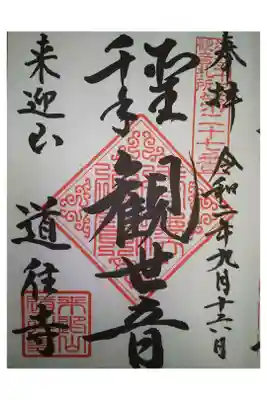 奉拝 令和二年九月十六日
聖
千手
観世音
来迎山
道往寺